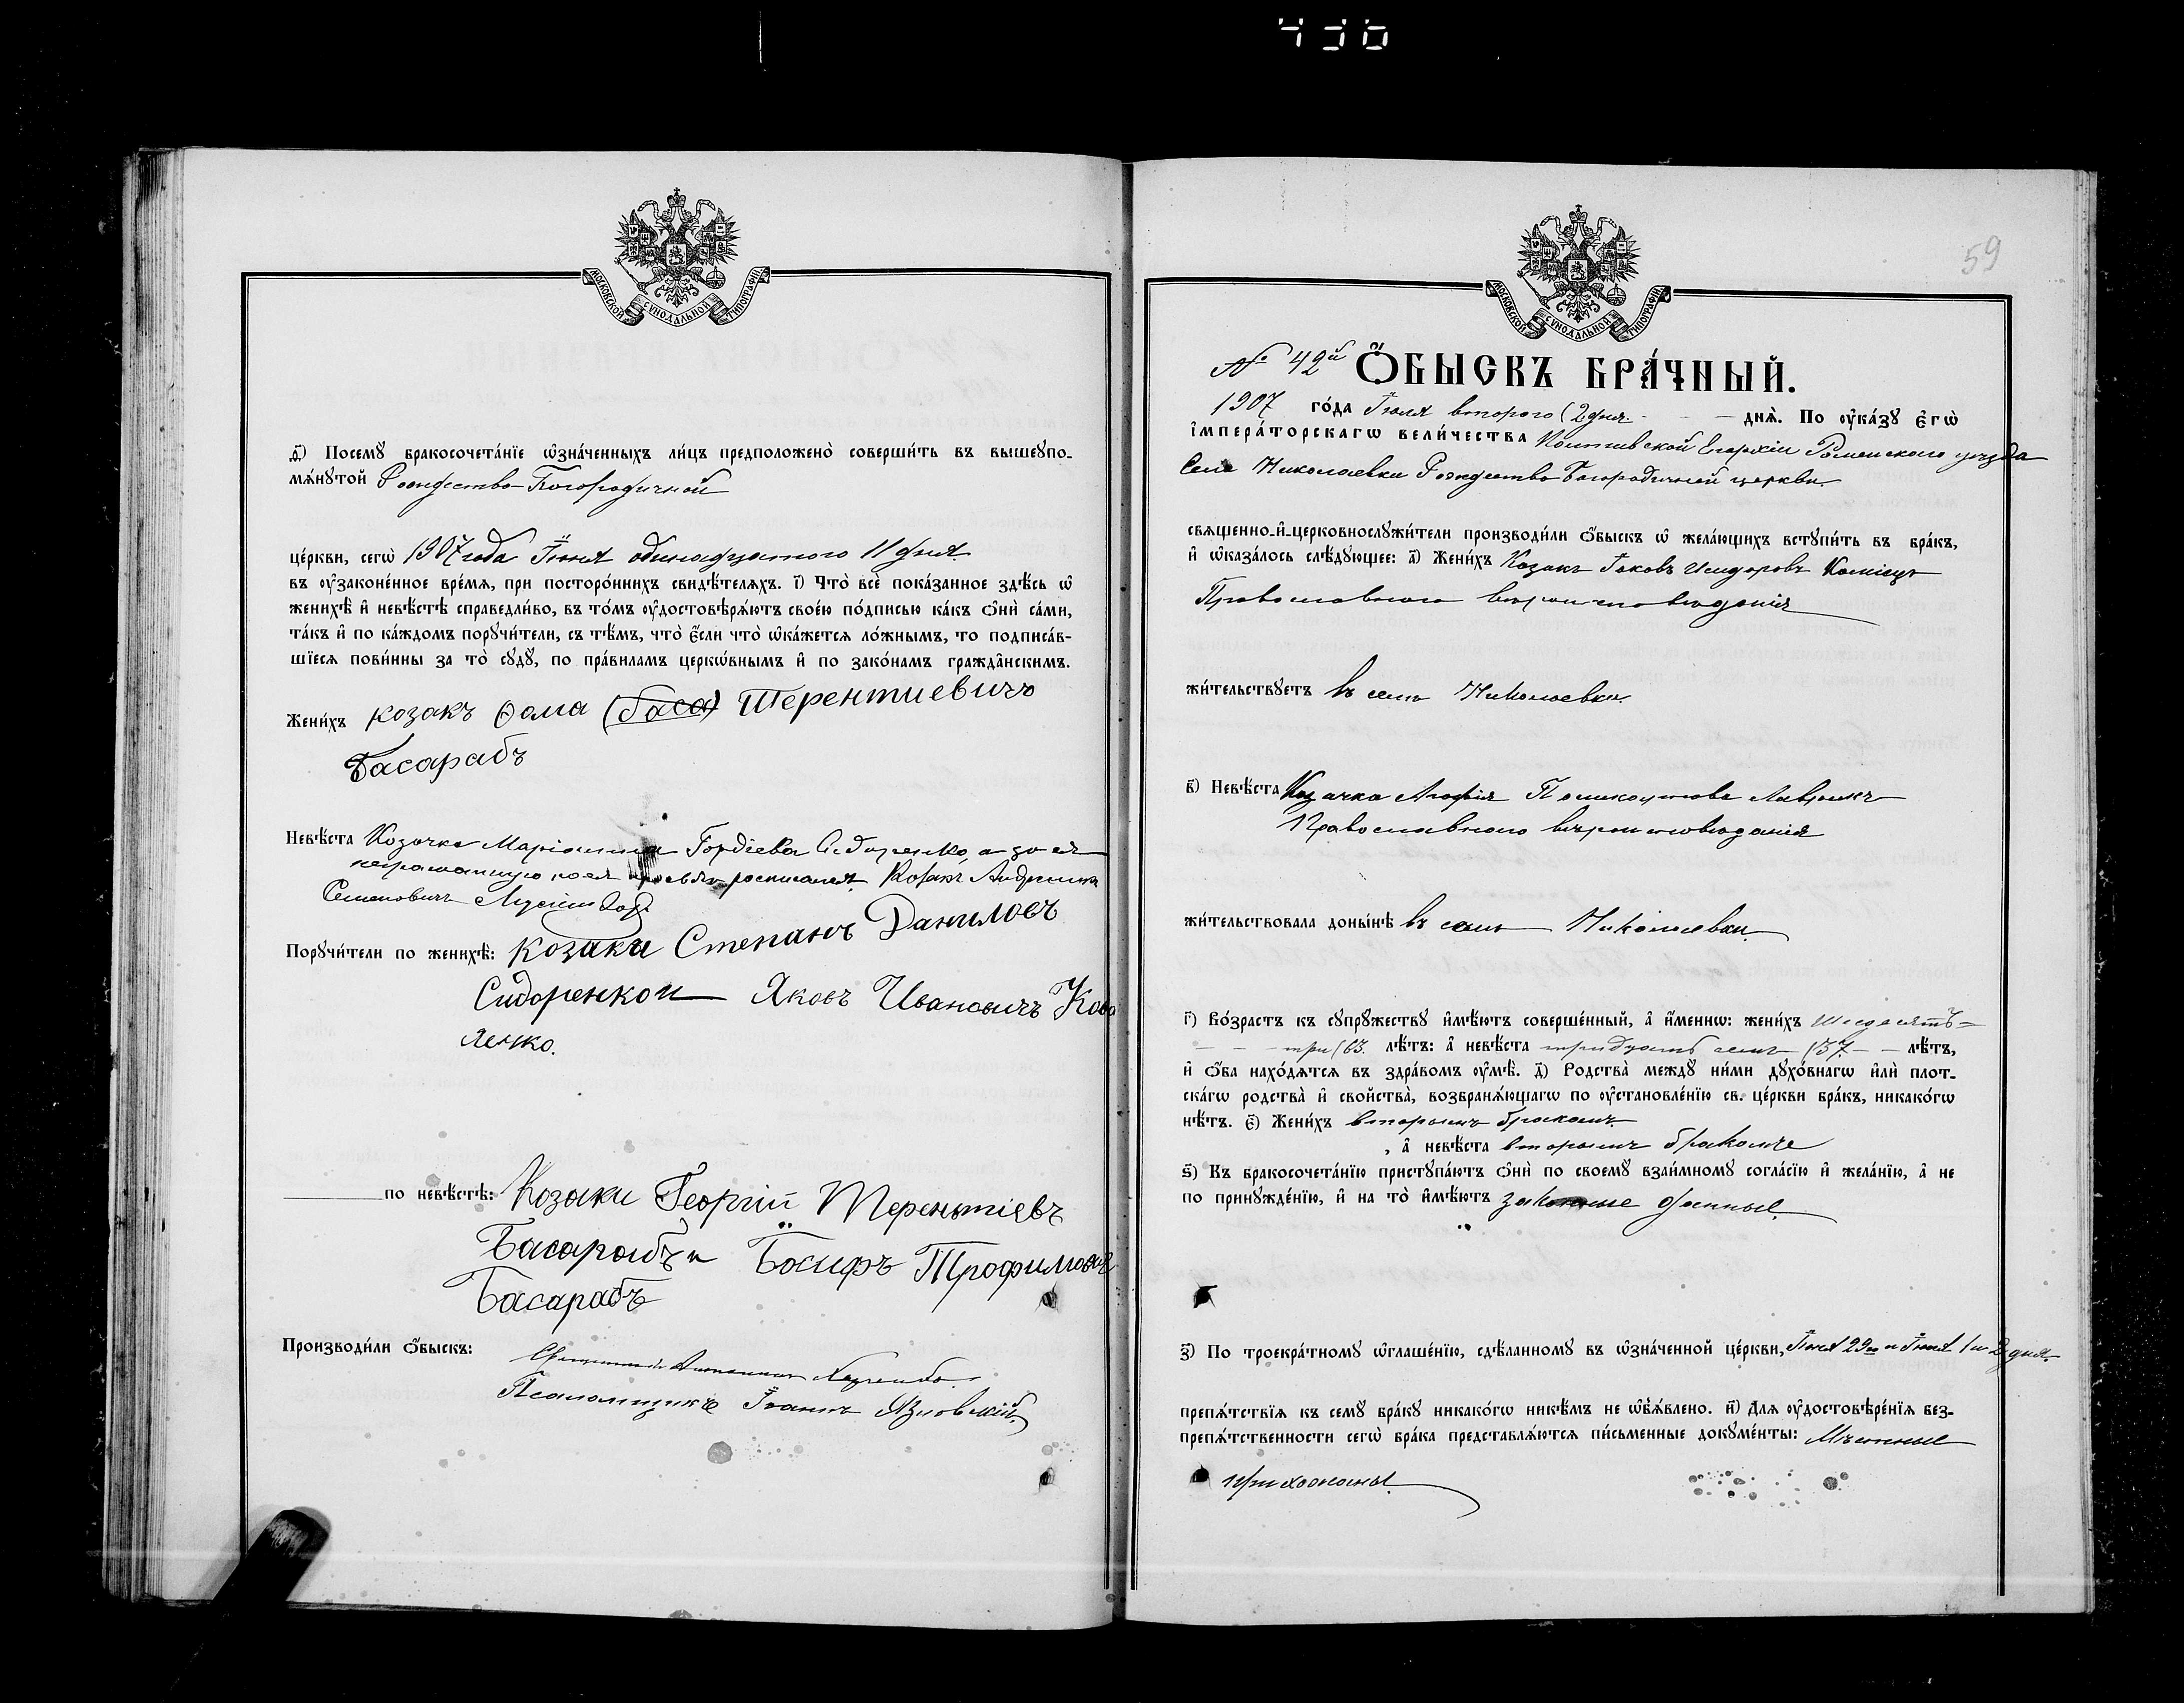 436
МОСКОВСКОЙ СѴНОДАЛЬНОЙ ТИПОГРАФІИ
ѳ҃) Посемꙋ бракосочета́нїе ѡ҆зна́ченныхъ ли́цъ предположено̀ соверши́ть въ вышеꙋпо-
мѧ́нутой Рождество-Богородичной
це́ркви, сегѡ̀ 1907 года Іюня одинадцатого 11 дня
въ ᲂу҆законе́нное вре́мѧ, при посторо́ннихъ свидѣ́телѧхъ. і҃) Что̀ всѐ пока́занное здѣ́сь ѡ҆
женихѣ̀ и҆ невѣ́стѣ справедли́во, въ то́мъ ᲂу҆достовѣрѧ́ютъ свое́ю по́дписью ка́къ ѻ҆нѝ са́ми,
та́къ и҆ по ка́ждомъ порꙋчи́тели, съ тѣ́мъ, что̀ є҆́сли что̀ ѡ҆ка́жетсѧ ло́жнымъ, то подписа́в-
шїесѧ пови́нны за то̀ сꙋдꙋ̀, по пра́виламъ церкѡ́внымъ и҆ по зако́намъ гражда̑нскимъ.
Жени́хъ козакъ Ѳома (баса) Терентиевичъ
Басарабъ
Невѣ́ста Козачка Маріанна Гордіева Сидоренко, а за ея
неграмотную по ея росписался Козакъ
Семеновичъ
Порꙋчи́тели по женихѣ̀: Козаки Степанъ Даниловъ
Сидоренко и Яковъ Ивановичъ Кова
ленко.
по невѣ́стѣ: Козаки Георгій Терентіевъ
Басарабъ и Іосифъ Трофимовъ
Басарабъ
Производи́ли ѻ҆́быскъ:
Псаломщикъ Іоаннъ
59
МОСКОВСКОЙ СѴНОДАЛЬНОЙ ТИПОГРАФІИ
№ 42й Ѻ҆́БЫСКЪ БРА́ЧНЫЙ.
1907 го́да Іюля второго (2 дня - - - днѧ̀. По ᲂу҆ка́зꙋ є҆гѡ̀
і҆мпера́торскагѡ вели́чества Полтавской Епархіи Роменского уѣзда
Села Николаевки Рождество Богородичной церкви
свѧщенно-и҆-церковнослꙋжи́тели производи́ли ѻ҆́быскъ ѡ҆ жела́ющихъ встꙋпи́ть въ бра́къ,
и҆ ѡ҆каза́лось слѣ́дꙋющее: а҃) Жени́хъ Козакъ Іаковъ Исидоровъ Коміецъ
Православного вѣроисповѣданія
жи́тельствꙋетъ въ селѣ Николаевки.
в҃) Невѣ́ста Козачка Агафія
Православного вѣроисповѣданія
жи́тельствовала донн́нѣ въ селѣ Николаевки.
г҃) Во́зрастъ къ сꙋпрꙋжествꙋ и҆мѣ́ютъ соверше́нный, а҆ и҆́меннѡ: жени́хъ шесдесятъ-
- - - три (63. лѣ́тъ: а҆ невѣ́ста тридцать семь (37.- - лѣ́тъ,
и҆ ѻ҆́ба нахо́дѧтсѧ въ здра́вомъ ᲂу҆мѣ̀. д҃) Родства̀ междꙋ ни́ми дꙋхо́внагѡ и҆лѝ плот-
ска́гѡ родства̀ и҆ свойства̀, возбранѧ́ющагѡ по ᲂу҆становле́нїю св. це́ркви бра́къ, никако́гѡ
нѣ́тъ. є҃) Жени́хъ вторымъ бракомъ
, а҆ невѣ́ста вторымъ бракомъ
ѕ҃) Къ бракосочета́нїю пристꙋпа́ютъ ѻ҆нѝ по своемꙋ̀ взаи́мномꙋ согла́сїю и҆ жела́нїю, а҆ не
по принꙋжде́нїю, и҆ на то̀ и҆мѣ́ютъ законные данные
з҃) По троекра́тномꙋ ѡ҆глаше́нїю, сдѣ́ланномꙋ въ ѡ҆зна́ченной це́ркви, Іюня 29го и Іюля 1 и 2 дня.
препѧ́тствїѧ къ семꙋ̀ бра́кꙋ никако́гѡ никѣ́мъ не ѡ҆б̾ѧ́влено. и҃) Длѧ ᲂу҆достовѣре́нїѧ без-
препѧ́тственности сегѡ̀ бра́ка представлѧ́ютсѧ пи́сьменные докꙋме́нты: Мѣстные
прихожаны.